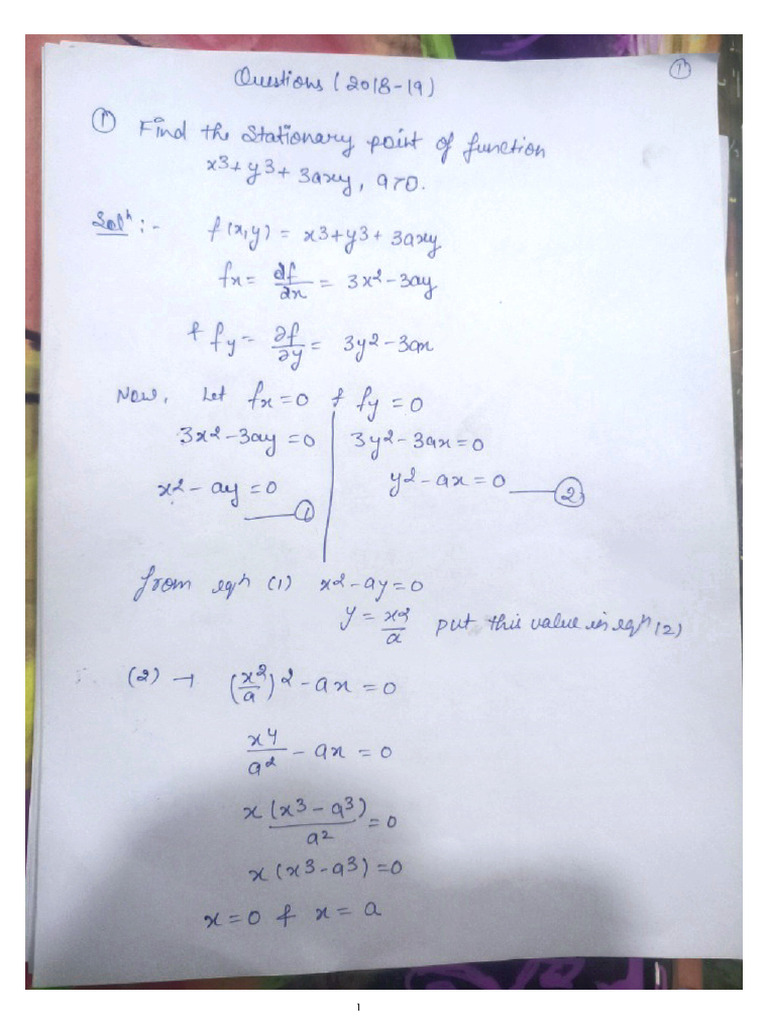 Questions (2018-19)
①
① Find the stationary point of function
x3+y3+3axy, a>0.
Solⁿ:- f(x,y) = x3+y3+3axy
fx = ∂f/∂x = 3x2-3ay
& fy = ∂f/∂y = 3y2-3ax
Now, Let fx=0 & fy=0
3x2-3ay=0 | 3y2-3ax=0
x2-ay=0 —① | y2-ax=0 —②
from eqⁿ (1) x2-ay=0
y = x2/a put this value in eqⁿ (2)
(2) → (x2/a)2 - ax = 0
x4/a2 - ax = 0
x(x3-a3)/a2 = 0
x(x3-a3)=0
x=0 & x=a
1